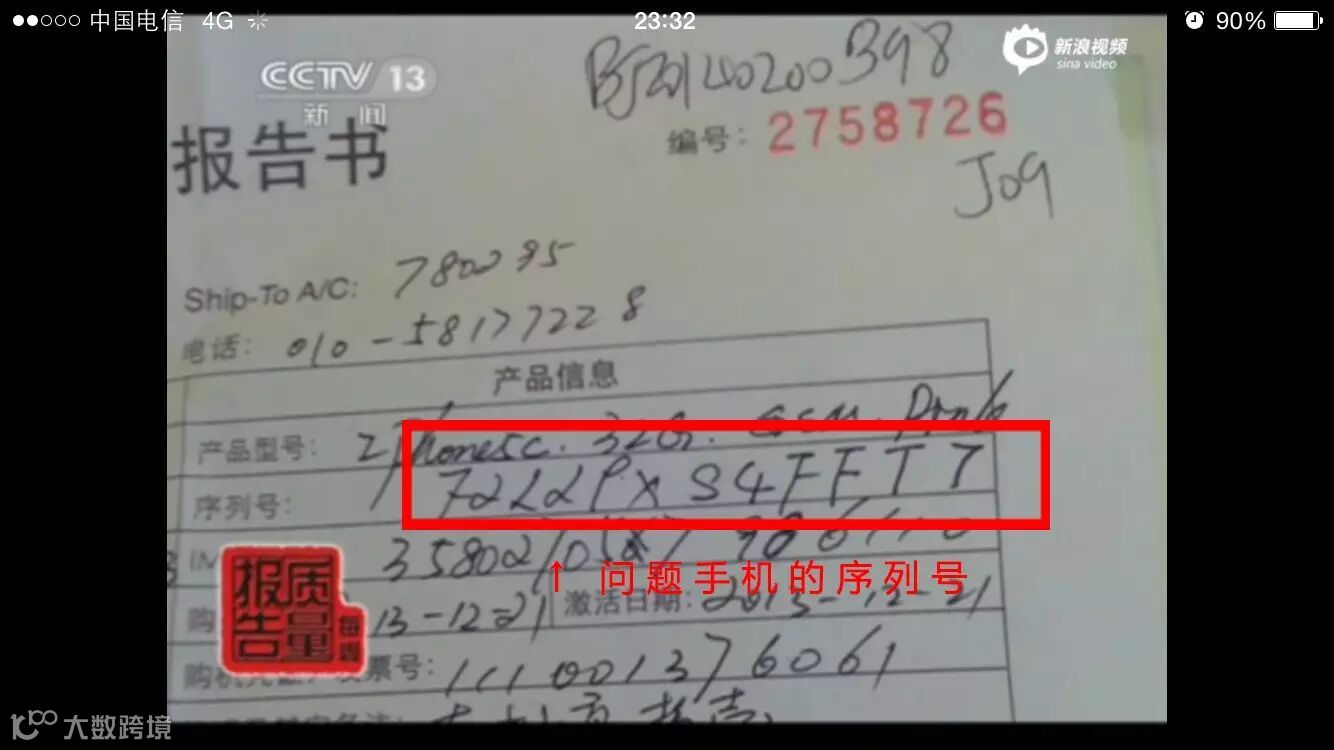 中国电信 4G 23:32 90%
CCTV 13
新闻
新浪视频
sina video
编号: 2758726
J09
报告书
Ship-To A/C: 780095
电话: 010-58177228
产品信息
产品型号: iPhone5c. 32G. GSM.
序列号: 722LPXS4FFT7
↑ 问题手机的序列号
13-12-21 激活日期: 2013-12-21
票号: 111001376061
质量报告
每周
大数跨境